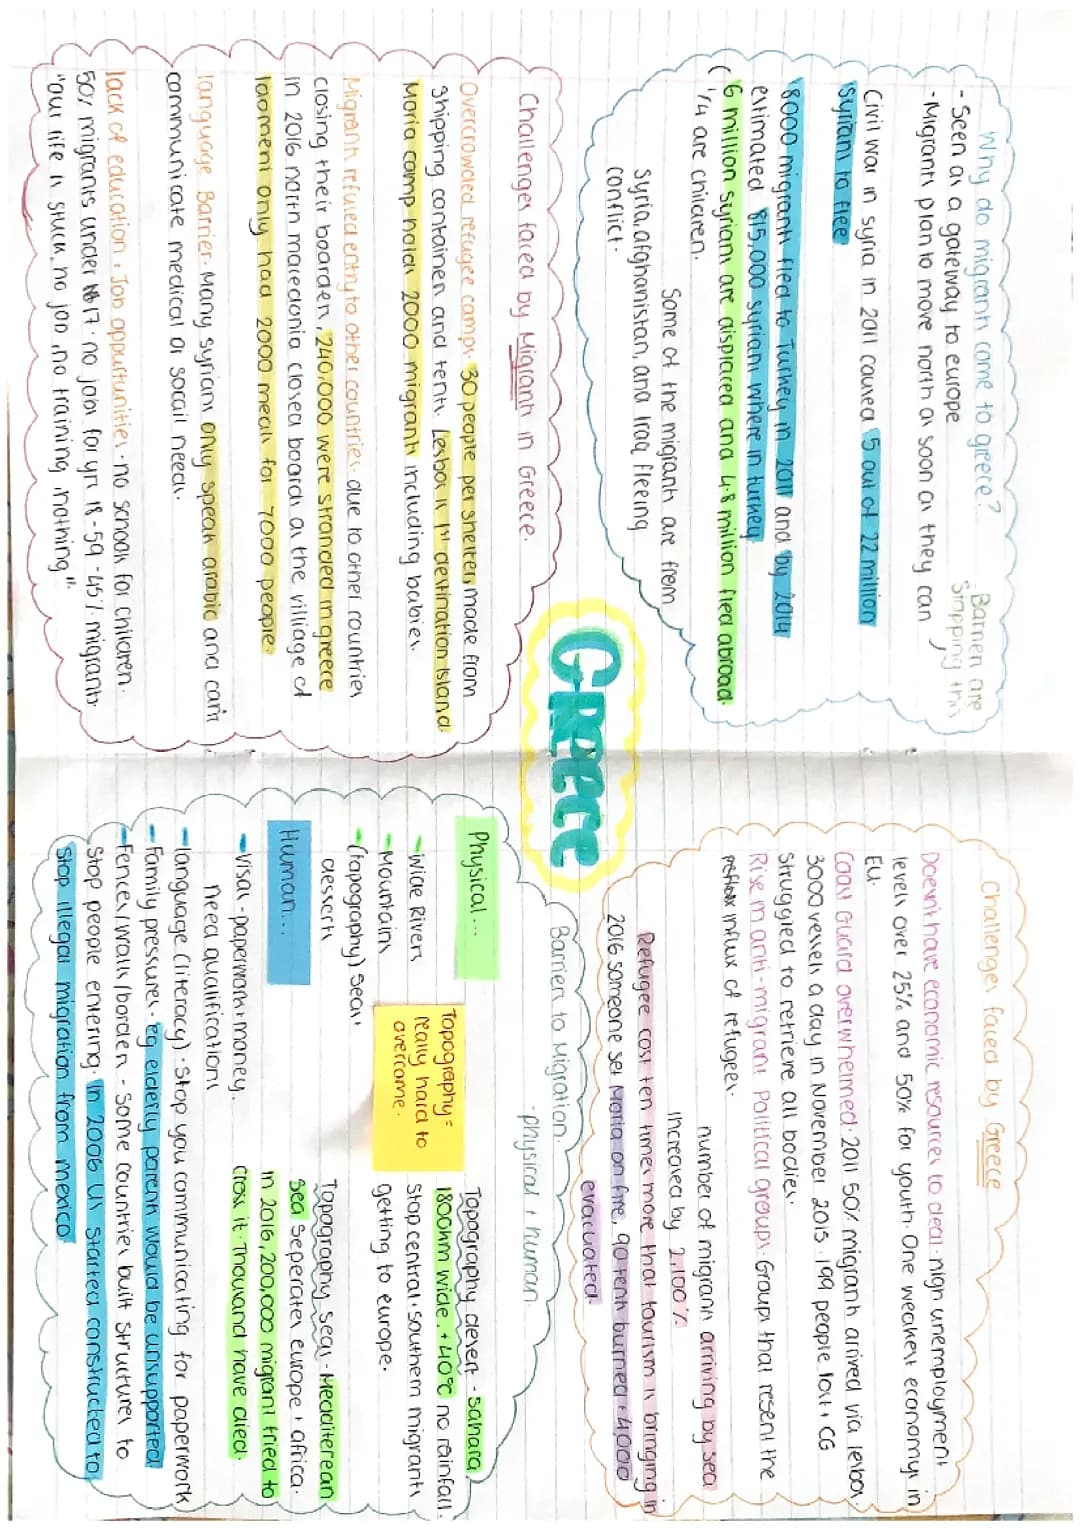 Why do migrants come to greece?
- Seen as a gateway to europe
- Migrants plan to move north as soon as they can
Barriers are
stopping this
Civil war in syria in 2011 caused 5 out of 22 million
syrians to flee
8000 migrants fled to Turkey in 2011 and by 2014
estimated 815,000 syrians where in turkey
(6 million syrians are displaced and 4.8 million fled abroad.
1/4 are children.
Some of the migrants are from
Syria, afghanistan, and Iraq fleeing
conflict.
Challenges faced by Migrants in Greece.
Overcrowded refugee camps. 30 people per shelter, made from
shipping containers and tents. Lesbos is 1st destination island.
Moria camp holds 2000 migrants including babies.
Migrants refused entry to other countries. due to other countries
closing their boarders, 240,000 were stranded in greece
in 2016 north macedonia closed boards as the villiage of
Idomeni only had 2000 meals for 7000 people.
language Barrier. Many syrians only speak arabic and can't
communicate medical or socail needs.
lack of education + Job oppurtunities. no schools for children.
50% migrants under 17. no jobs for yrs 18-59 - 45% migrants.
"our life is stuck, no job, no training, nothing".
GREECE
Challenges faced by Greece
Doesn't have economic resources to deal. high unemployment
levels over 25% and 50% for youth. One weakest economys in
EU.
Coast Guard overwhelmed. 2011 50% migrants arrived via lesbos.
3000 vessels a day in November 2015. 199 people lost + CG
Struggled to retrieve all bodies.
Rise in anti-migrant Political groups. Groups that resent the
influx of refugees.
number of migrants arriving by sea
increased by 2,100%
Refugee cost ten times more that tourism is bringing in
2016 someone set Moria on fire, 90 tents burned + 4,000
evacuated.
Barriers to Migration.
- Physical + human.
Physical...
- Wide Rivers
- Mountains
- (tapography) Seas +
desserts
Topography =
really hard to
overcome.
Topography desert - Sahara
1800km wide. +40°c no rainfall.
Stop central + southern migrants
getting to europe.
Topography seas - Meaditerean
Sea seperates europe + africa.
in 2016, 200,000 migrants tried to
cross it. Thousands have died.
Human...
- Visas - paperwork + money.
need qualifications
- language (literacy) - stop you communicating for paperwork
- Family pressures - eg elderly parents would be unsupported
- Fences/walls/borders - some countries built structures to
stop people entering. In 2006 US started constructed to
stop illegal migration from mexico